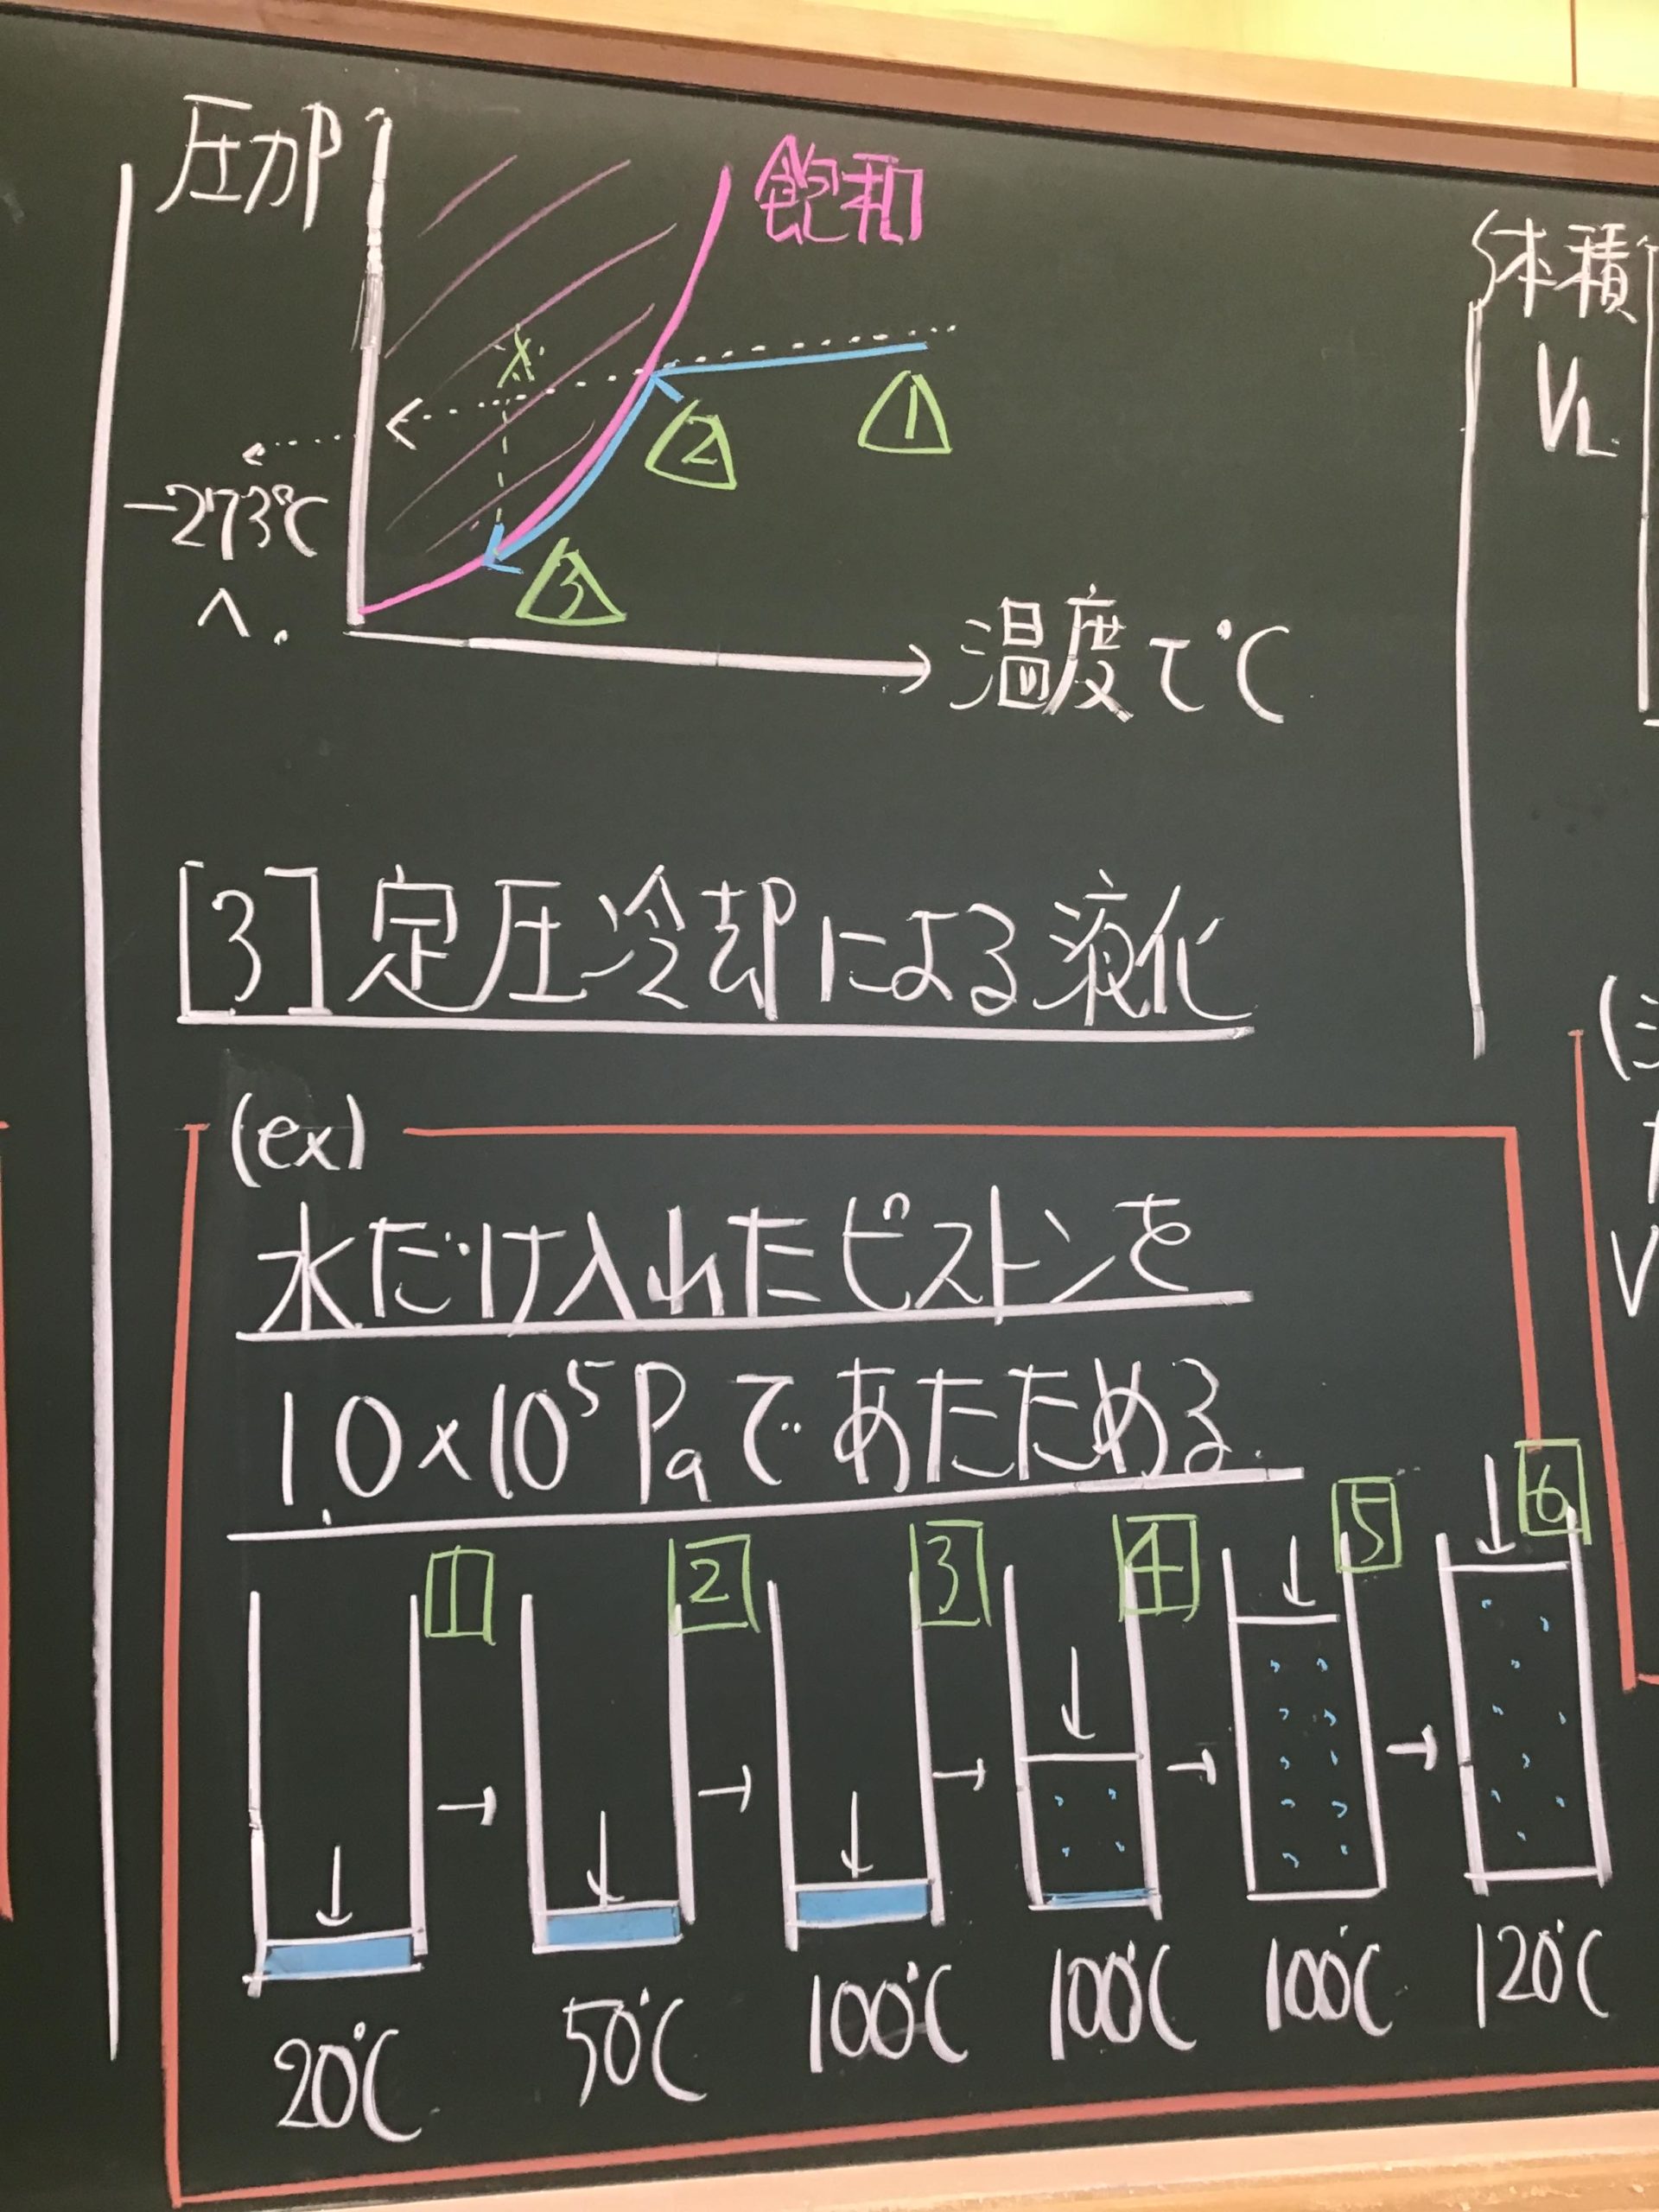 圧力P
飽和
①
②
③
-273℃
へ.
温度t℃
体積
VL
[3]定圧冷却による液化
(ex)
水だけ入れたピストンを
1.0×10⁵Paであたためる.
1
2
3
4
5
6
→
→
→
→
→
20℃
50℃
100℃
100℃
100℃
120℃
V